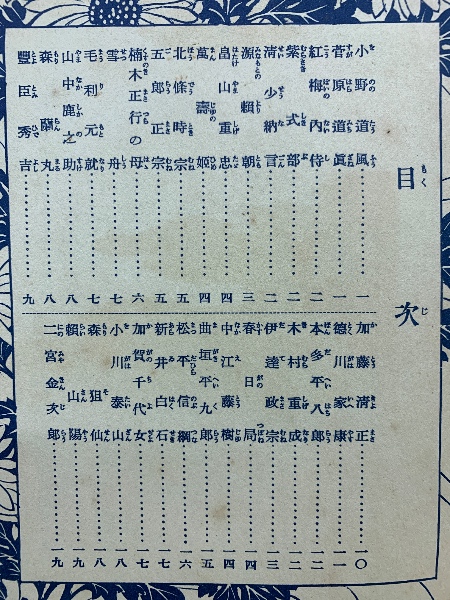 目次
小野道風………一
菅原道眞………一
紅梅內侍………二
紫式部………二
淸少納言………二
源賴朝………三
畠山重忠………四
萬壽姬………四
北條時宗………五
五郎正宗………五
楠木正行の母………六
雪舟………七
毛利元就………七
山中鹿之助………八
森蘭丸………八
豐臣秀吉………九
加藤淸正………一〇
德川家康………一一
本多平八郎………一二
木村重成………一二
伊達政宗………一三
春日局………一四
中江藤樹………一四
曲垣平九郎………一五
松平信綱………一六
新井白石………一七
加賀千代女………一七
小川泰山………一八
森狙仙………一八
賴山陽………一九
二宮金次郎………一九